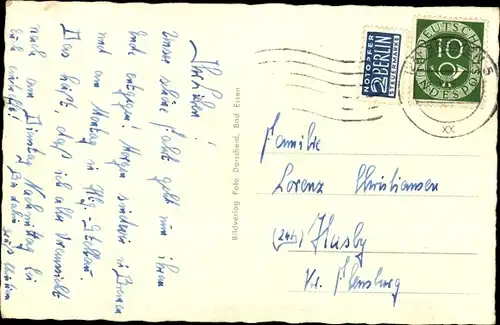 Ihr Lieben!
Unsere schöne Fahrt geht nun ihrem
Ende entgegen! Morgen sind wir in Bremen
und am Montag in Hbg.
Das heißt, daß ich aller Voraussicht
nach am Dienstag Nachmittag bei
Euch
Bis dahin
Bildverlag Foto Dorscheid, Bad Essen
NOTOPFER
2 BERLIN
STEUERMARKE
DEUTSCHE
10
BUNDESPOST
XX
Familie
Lorenz Christiansen
(24b) Husby
Kr. Flensburg